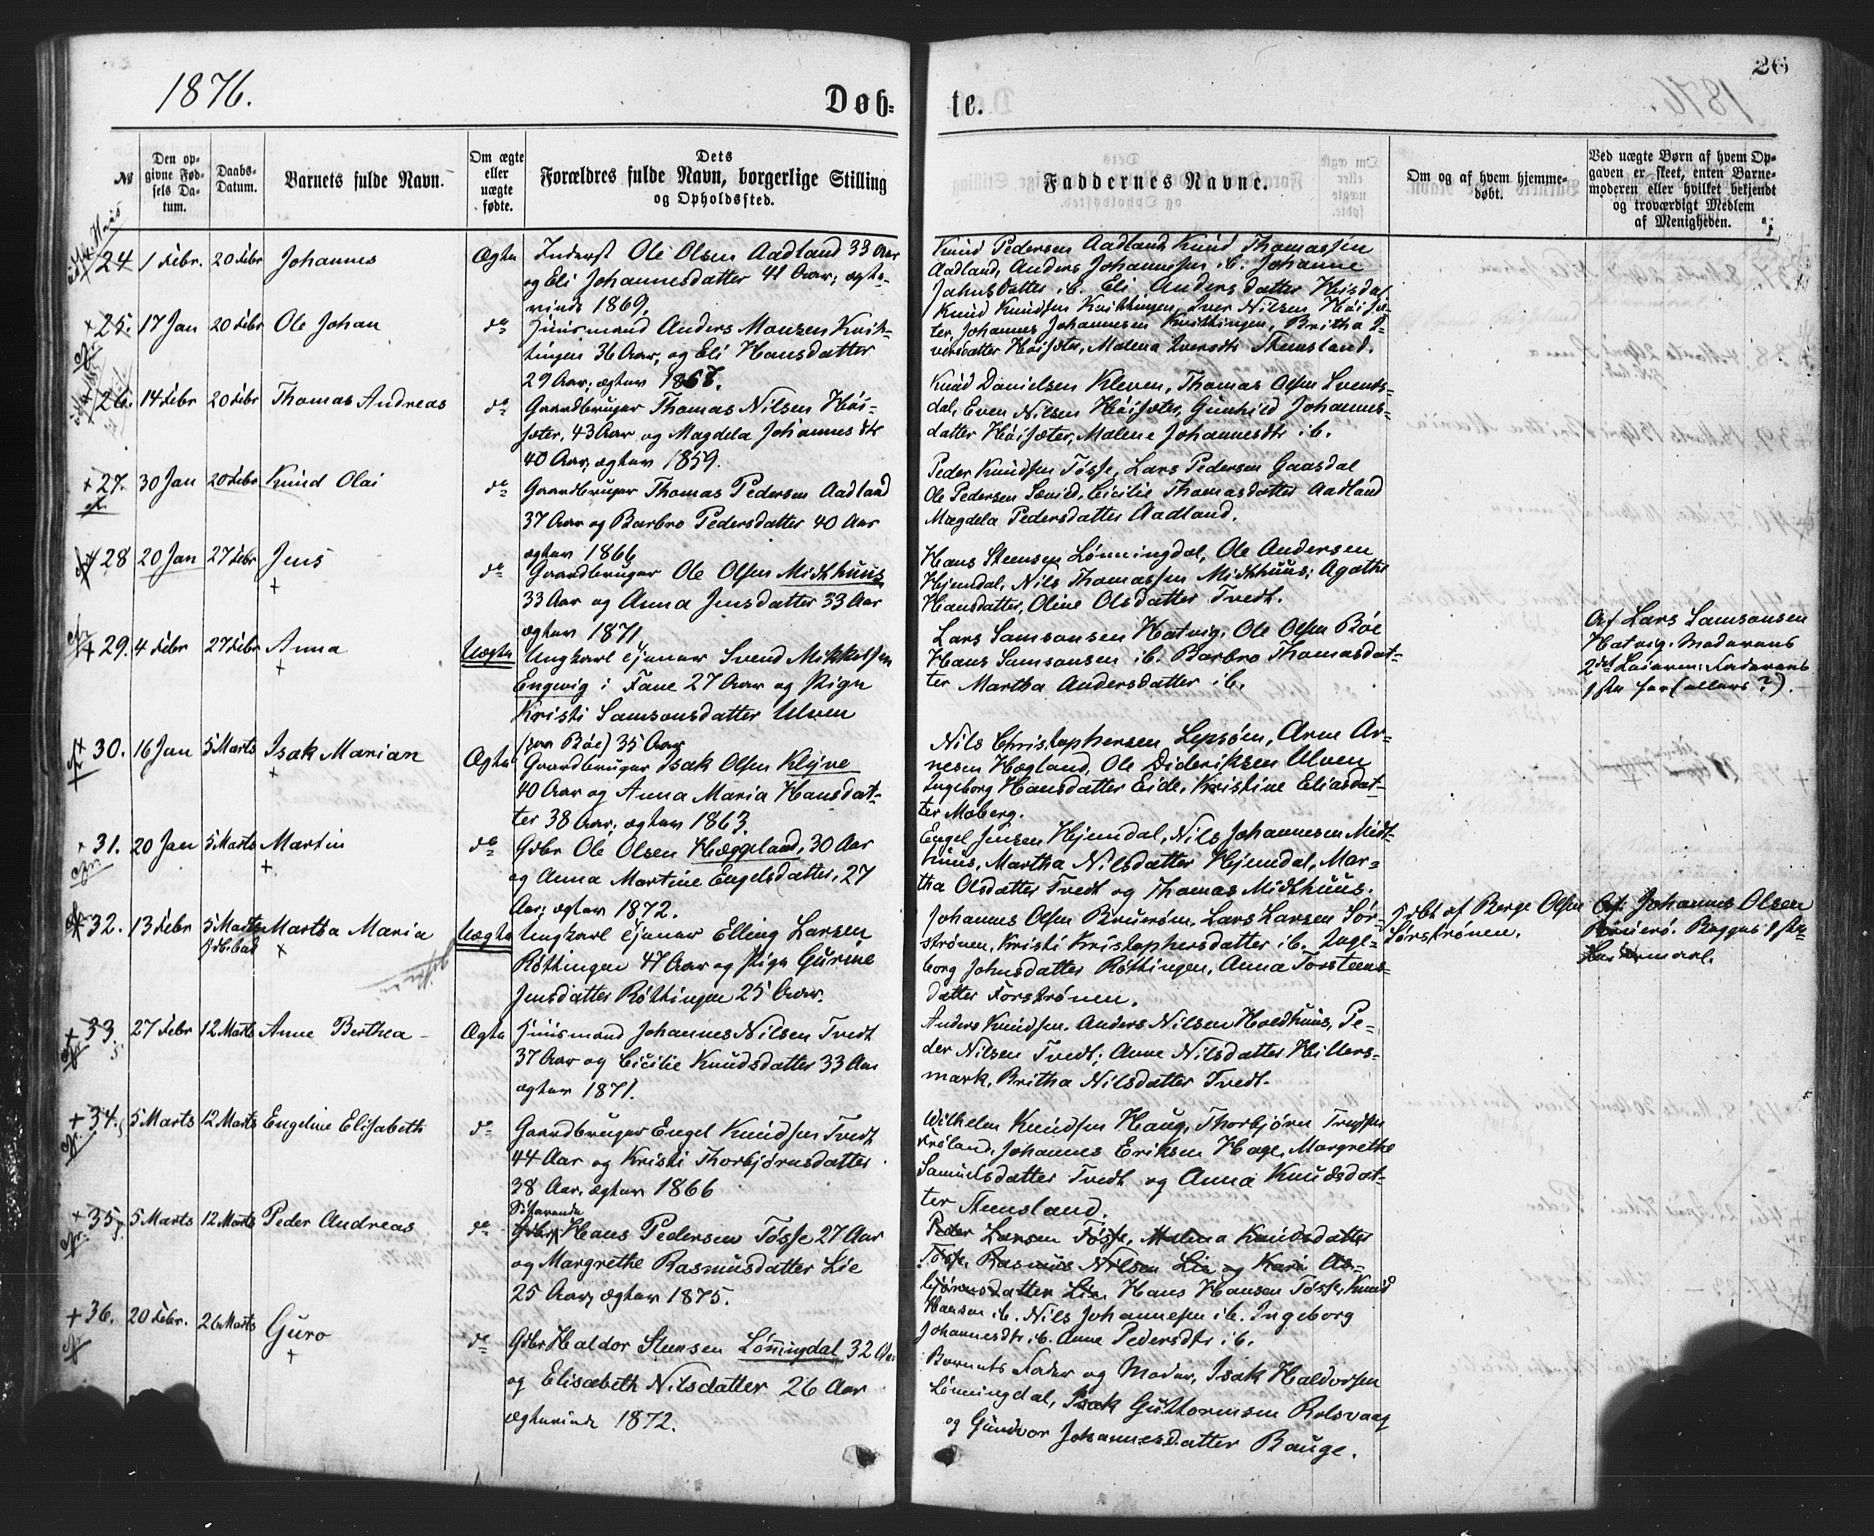 1876.
Døb-
te.
26
№
Den op-
givne Fød-
sels Da-
tum.
Daabs-
Datum.
Barnets fulde Navn.
Om ægte
eller
uægte
fødte.
Dets
Forældres fulde Navn, borgerlige Stilling
og Opholdssted.
Faddernes Navne.
Om og af hvem hjemme-
døbt.
Ved uægte Børn af hvem Op-
gaven er skeet, enten Barne-
moderen eller hvilket bekjendt
og troværdigt Medlem
af Menigheden.
24 1 Febr. 20 Febr Johannes Ægte Inderst Ole Olsen Aadland 33 Aar
og Eli Johannesdatter 41 Aar; ægte-
viede 1869,
Knud Pedersen Aadland, Knud Thomassen
Aadland, Anders Johannesen ib. Johanne
ib. Eli Andersdatter
25. 17 Jan 20 Febr Ole Johan do Huusmand Anders Monsen Knik-
tingen 36 Aar, og Eli Hansdatter
29 Aar; ægtev 1867.
Knud Knudsen Iver Nilsen Høisæ-
ter, Johannes Johannesen Britha I-
versdatter Høisæter, Malena Iversdtr Stensland.
26. 14 Febr 20 Febr Thomas Andreas do Gaardbruger Thomas Nilsen Høi-
sæter, 43 Aar og Magdela Johannesdtr
40 Aar, ægtev 1859.
Knud Danielsen Kleven, Thomas Olsen Svends-
dal, Even Nilsen Høisæter, Gunhild Johannes-
datter Høisæter, Malene Johannesdtr ib.
27. 30 Jan 20 Febr Knud Olai do Gaardbruger Thomas Pedersen Aadland
37 Aar og Barbro Pedersdatter 40 Aar
ægtev 1866
Peder Knudsen Tøsse, Lars Pedersen Gaasdal
Ole Pedersen Cicilie Thomasdatter Aadland
Magdela Pedersdatter Aadland.
28 20 Jan 27 Febr Jens do Gaardbruger Ole Olsen Midthuus
33 Aar og Anna Jensdatter 33 Aar
ægtev 1871,
Hans Stensen Lønningdal, Ole Andersen
Hjemdal, Nils Thomassen Midthuus; Agathe
Hansdatter, Oline Olsdatter Tvedt.
29. 4 Febr 27 Febr Anna Uægte Ungkarl tjener Svend Mikkelsen
Engevig i Fane 27 Aar og Pige
Kristi Samsonsdatter Ulven
(før Bøe) 35 Aar
Lars Samsonsen Hatvig, Ole Olsen Bøe
Hans Samsonsen ib. Barbro Thomasdat-
ter Martha Andersdatter ib.
Af Lars Samsonsen
Hatvig. Moderens
2det Leierm: Faderens
1ste før (ellers?).
30. 16 Jan 5 Marts Isak Marian Ægte Gaardbruger Isak Olsen Klyve
40 Aar og Anna Maria Hansdat-
ter 38 Aar; ægtev 1863.
Nils Christophersen Lepsøen, Arne Ar-
nesen Hægland, Ole Dideriksen Ulven
Ingeborg Hansdatter Eide, Kristine Eliasdat-
ter Moberg.
31. 20 Jan 5 Marts Martin do Gdbr Ole Olsen Hæggeland, 30 Aar
og Anna Martine Engelsdatter, 27
Aar; ægtev 1872.
Engel Jensen Hjemdal, Nils Johannesen Midt-
huus, Martha Nilsdatter Hjemdal, Mar-
tha Olsdatter Tvedt og Thomas Midthuus.
32. 13 Febr 5 Marts Martha Maria Uægte Ungkarl tjener Elling Larsen
Røttingen 47 Aar og Pige Gurine
Jensdatter Røttingen 25 Aar.
Johannes Olsen Bruerøen, Lars Larsen Før-
strønen, Kristi Kristophersdatter ib. Inge-
borg Johnsdatter Røttingen, Anna Torsteens-
datter Forstrønen.
Hdbt af Berge Olsen
Førstrønen.
Af Johannes Olsen
Bruerø. Begges 1ste
33. 27 Febr 12 Marts Anne Berthea Ægte Huusmand Johannes Nilsen Tvedt
37 Aar og Cicilie Knudsdatter 33 Aar
ægtev 1871.
Anders Knudsen, Anders Nilsen Holdhuus, Pe-
der Nilsen Tvedt; Anne Nilsdatter Hillers-
mark, Britha Nilsdatter Tvedt.
34. 5 Marts 12 Marts Engeline Elisabeth do Gaardbruger Engel Knudsen Tvedt
44 Aar og Kristi Thorbjørnsdatter
38 Aar, ægtev 1866
Wilhelm Knudsen Haug, Thorbjørn
Frøland, Johannes Eriksen Hage, Margrethe
Samuelsdatter Tvedt og Anna Knudsdat-
ter Stensland.
35. 5 Marts 12 Marts Peder Andreas do Gdbr Hans Pedersen Tøsse 27 Aar
og Margrethe Rasmusdatter Lie
25 Aar, ægtev 1875.
Peder Larsen Tøsse, Malena Knudsdatter
Tøsse, Rasmus Nilsen Lie og Kari As-
bjørnsdatter Lie Hans Hansen Tøsse, Knud
Hansen ib. Nils Johannesen ib. Ingeborg
Johannesdtr ib. Anne Pedersdtr ib.
36. 20 Febr. 26 Marts Guro do Gdbr Haldor Stensen Lønningdal 32 Aar
og Elisabeth Nilsdatter 26 Aar
ægteviede 1872.
Barnets Fader og Moder, Isak Haldorsen
Lønningdal, Isak Guttormsen Rolsvaag
og Gundvor Johannesdatter Bauge.